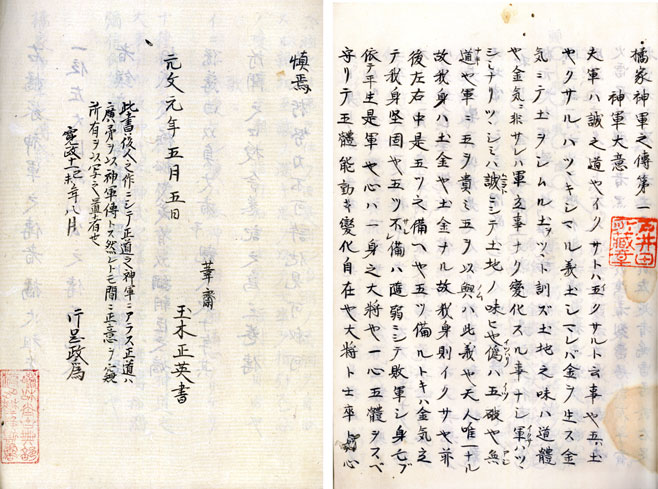 橘家神軍之傳第一
神軍大意
夫軍ハ誠之道也イクサトハ五クサルト云事也五ハ土
也クサルハツヾキシマル義土シマレバ金ヲ生ス金
気ニテ土ヲシムル土ヲツヽト訓ズ土地之味ハ道體
也金気ニ非サレハ軍立事ナク変化スル事ナシ軍ハツヽ
シミナリツヽシミハ誠ニシテ土地ノ味ヒ也偽ハ五破也無
道也軍ニ五ヲ貴ミ五ヲ以興ハ此義也天人唯一ナル
故我身ハ土金也土金ナル故我身則イクサ也前
後左右中是五ツ之備ヘ也五ツ備ルトキハ金気立
テ我身堅固也五ツ不備ハ随弱ニシテ敗軍シ身亡ブ
依テ平生是軍也心ハ一身之大将也一心五體ヲスベ
守リテ五體能動キ變化自在也大将ト士卒ト心
慎焉
元文元年五月五日
葦齋
玉木正英書
此書後人之作ニシテ正道之神軍ニアラス正道ハ
廣矛ヲ以神軍傳トス然レトモ間ニ正意ヲ窺
所有ヲ以写之置者也
寛政十一己未年八月
行思政爲